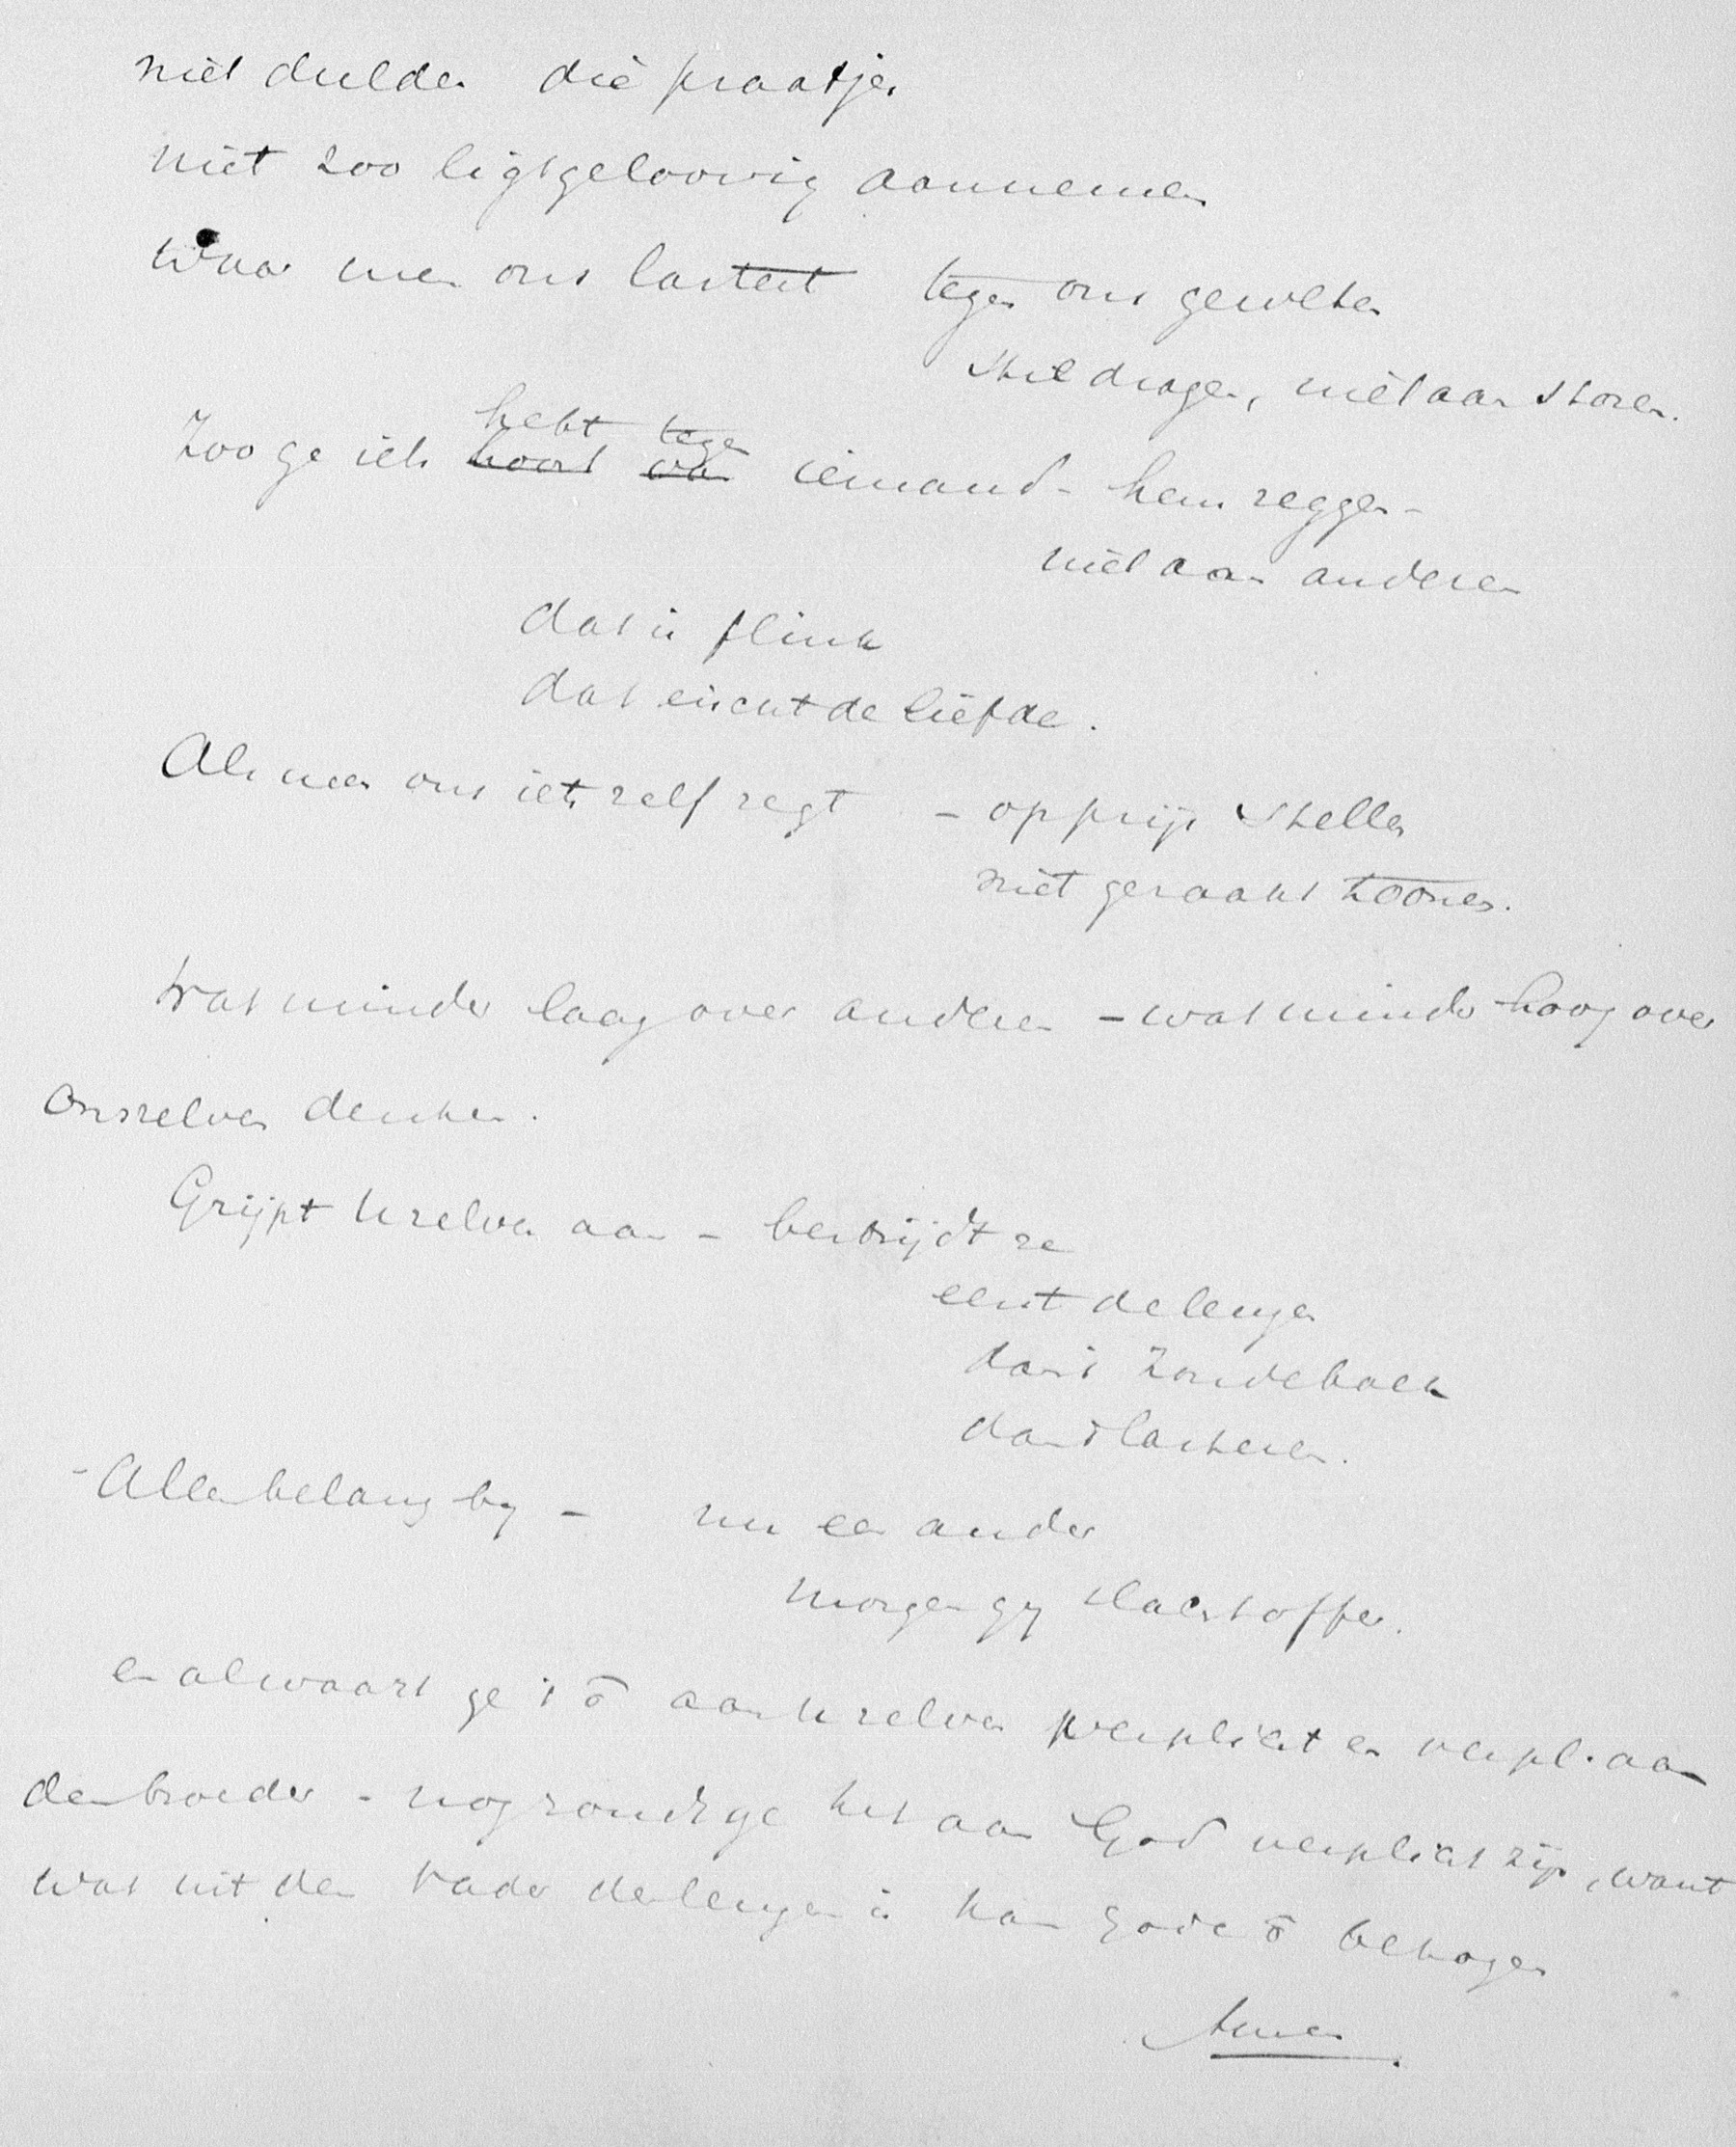 niet dulden die praatjes
niet zoo ligtgeloovig aannemen
Waar men ons lastert tegen ons geweten
stil dragen, niet aan storen.
hebt tegen
Zoo ge iets hoort van iemand - hem zeggen -
niet aan anderen
dat is flink
dat eischt de liefde.
Als men ons iets zelf zegt - op prijs stellen
niet geraakt toonen.
Wat minder laag over anderen - wat minder hoog over
onszelven denken.
Grijpt U zelven aan - bestrijdt ze
eerst de leugen
dan 't kwade
dan 't lasteren.
- Aller belang by - nu een ander
morgen gy slachtoffer.
en al waart ge 't ō aan U zelven verplicht en verpl. aan
den broeder - nog zoudt ge het aan God verplicht zijn, want
wat uit den vader der leugen is kan Gode ō behagen
Amen